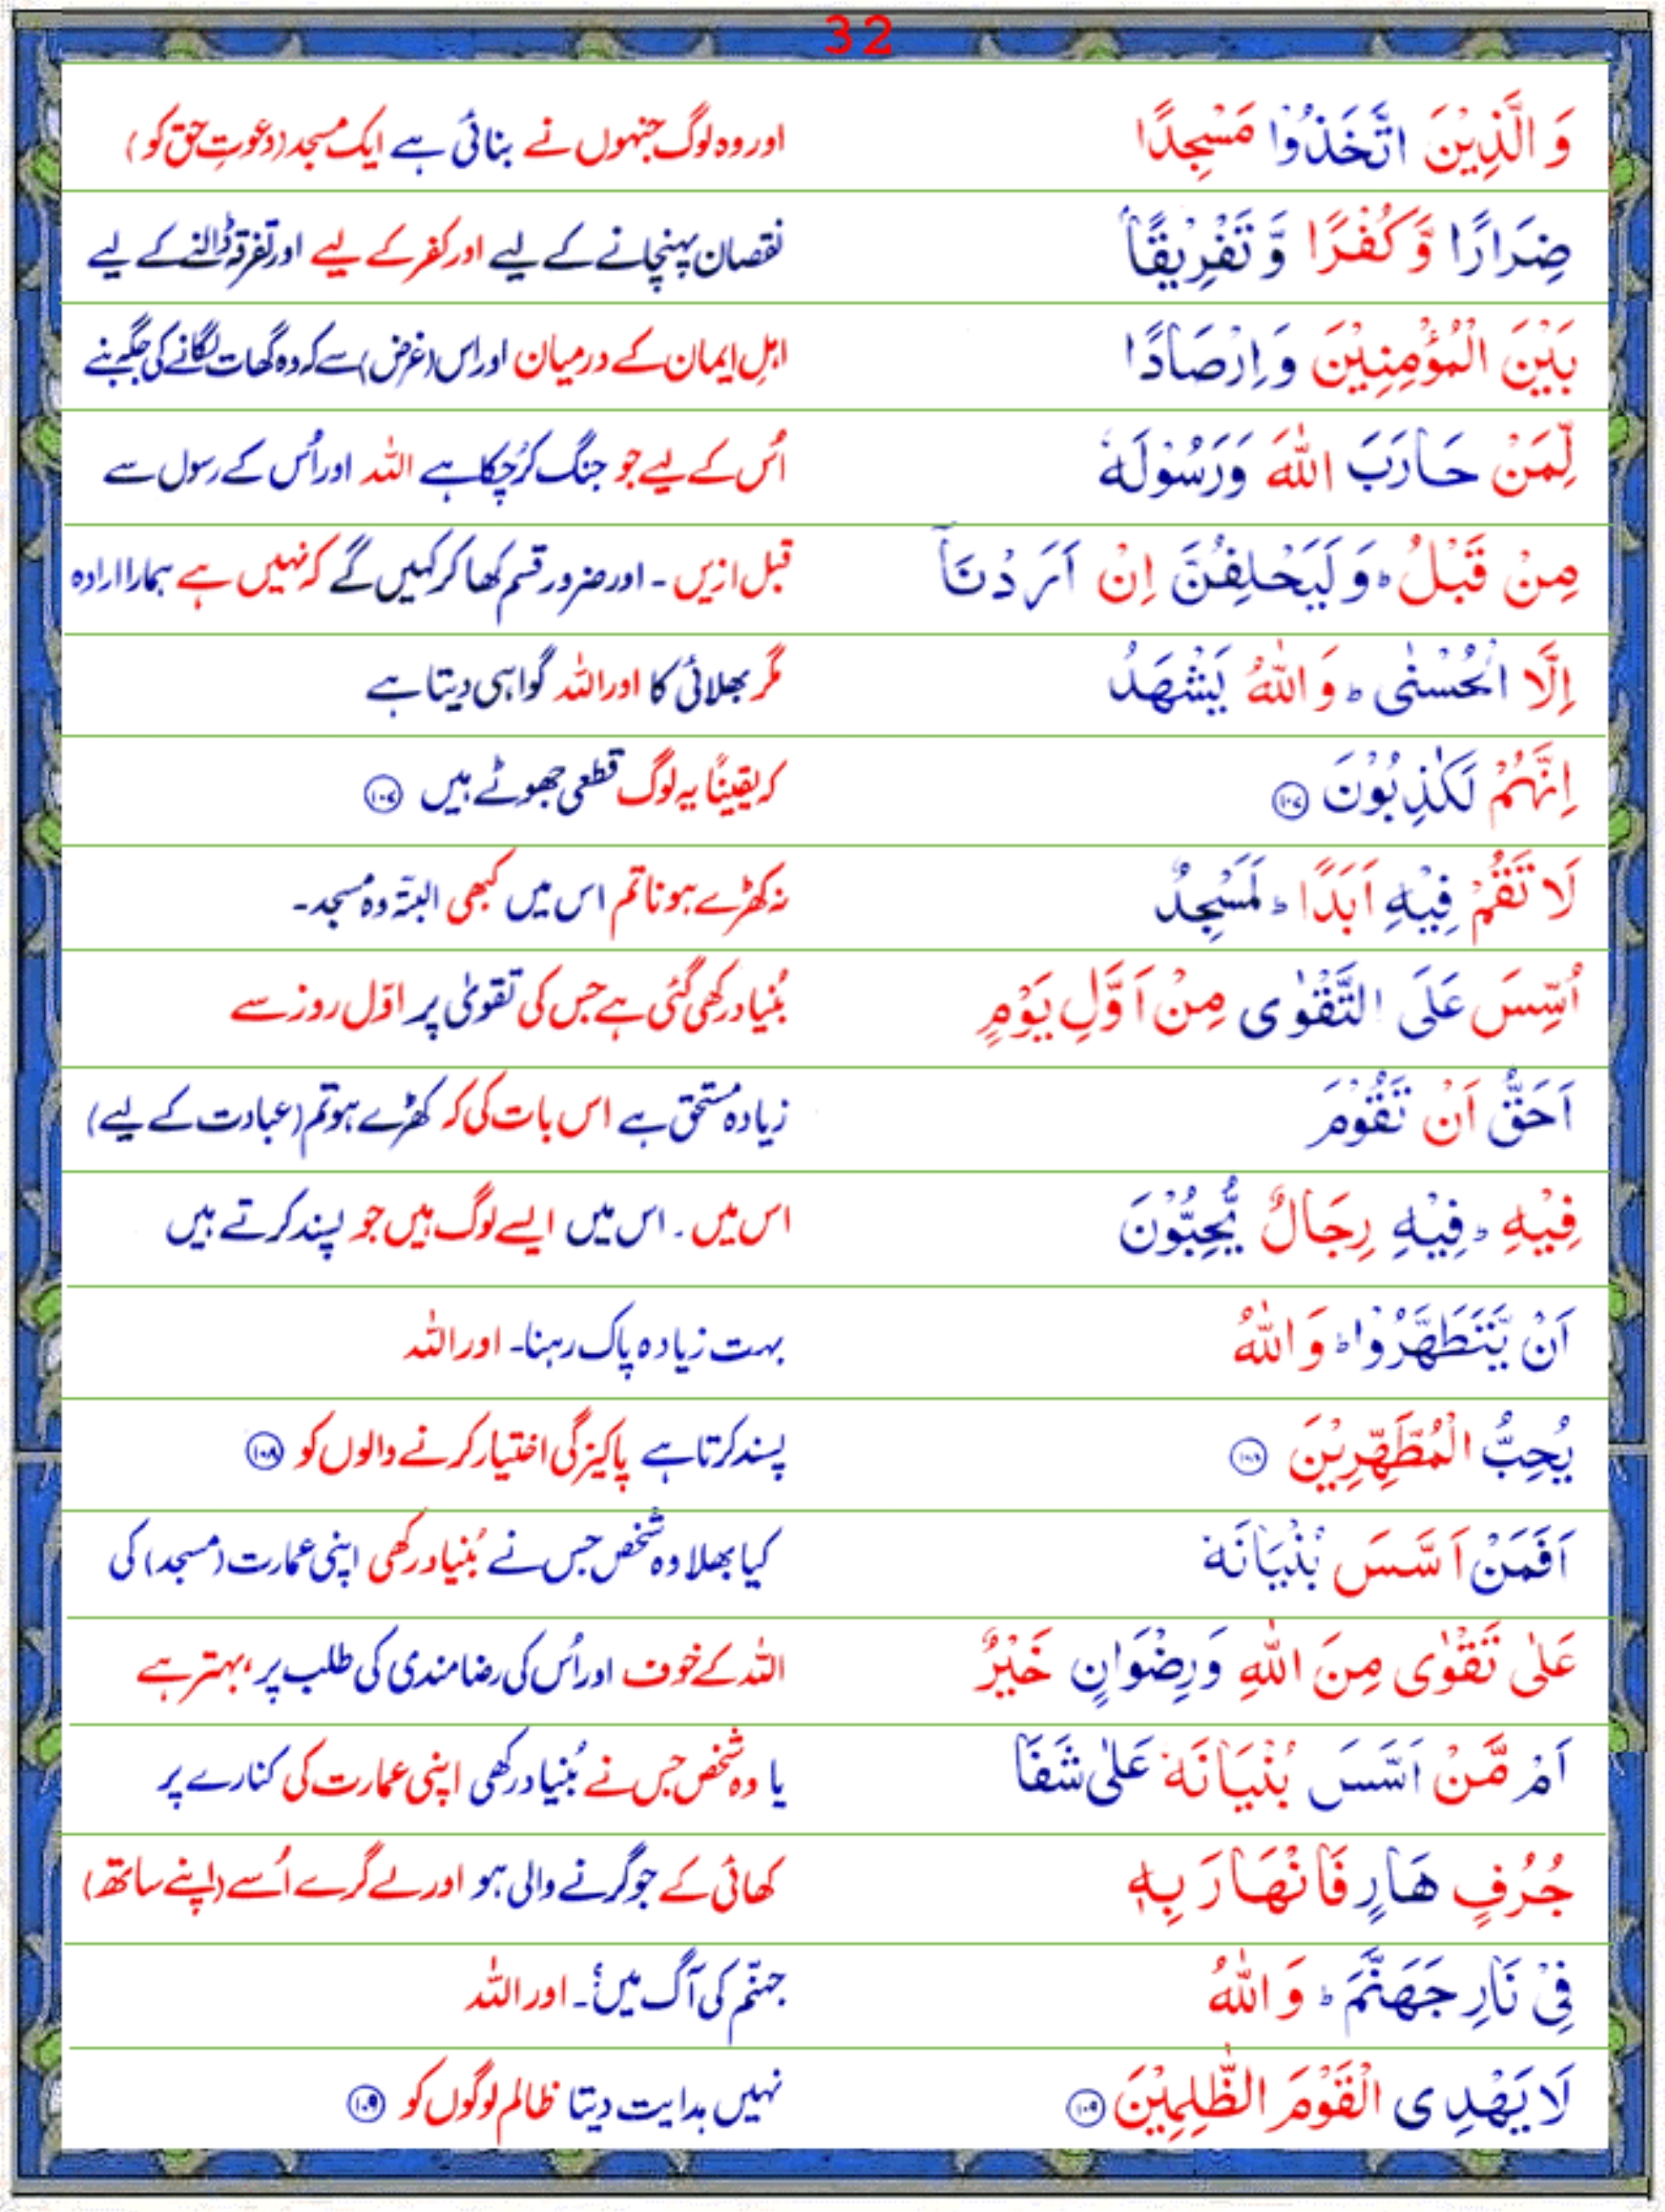 32
وَ الَّذِیْنَ اتَّخَذُوْا مَسْجِدًا اور وہ لوگ جنہوں نے بنائی ہے ایک مسجد (دعوتِ حق کو)
ضِرَارًا وَّ كُفْرًا وَّ تَفْرِیْقًۢا نقصان پہنچانے کے لیے اور کفر کے لیے اور تفرقہ ڈالنے کے لیے
بَیْنَ الْمُؤْمِنِیْنَ وَ اِرْصَادًا اہلِ ایمان کے درمیان اور اس (غرض) سے کہ وہ گھات لگانے کی جگہ بنے
لِّمَنْ حَارَبَ اللّٰهَ وَ رَسُوْلَهٗ اُس کے لیے جو جنگ کرچکا ہے اللہ اور اُس کے رسول سے
مِنْ قَبْلُ ؕ وَ لَیَحْلِفُنَّ اِنْ اَرَدْنَاۤ قبل ازیں ۔ اور ضرور قسم کھا کر کہیں گے کہ نہیں ہے ہمارا ارادہ
اِلَّا الْحُسْنٰی ؕ وَ اللّٰهُ یَشْهَدُ مگر بھلائی کا اور اللہ گواہی دیتا ہے
اِنَّهُمْ لَكٰذِبُوْنَ ۱۰۷ کہ یقیناً یہ لوگ قطعی جھوٹے ہیں ۱۰۷
لَا تَقُمْ فِیْهِ اَبَدًا ؕ لَمَسْجِدٌ نہ کھڑے ہونا تم اس میں کبھی البتہ وہ مسجد۔
اُسِّسَ عَلَی التَّقْوٰی مِنْ اَوَّلِ یَوْمٍ بُنیاد رکھی گئی ہے جس کی تقویٰ پر اوّل روز سے
اَحَقُّ اَنْ تَقُوْمَ زیادہ مستحق ہے اس بات کی کہ کھڑے ہو تم (عبادت کے لیے)
فِیْهِ ؕ فِیْهِ رِجَالٌ یُّحِبُّوْنَ اس میں ۔ اس میں ایسے لوگ ہیں جو پسند کرتے ہیں
اَنْ یَّتَطَهَّرُوْا ؕ وَ اللّٰهُ بہت زیادہ پاک رہنا۔ اور اللہ
یُحِبُّ الْمُطَّهِّرِیْنَ ۱۰۸ پسند کرتا ہے پاکیزگی اختیار کرنے والوں کو ۱۰۸
اَفَمَنْ اَسَّسَ بُنْیَانَهٗ کیا بھلا وہ شخص جس نے بُنیاد رکھی اپنی عمارت (مسجد) کی
عَلٰی تَقْوٰی مِنَ اللّٰهِ وَ رِضْوَانٍ خَیْرٌ اللہ کے خوف اور اُس کی رضامندی کی طلب پر، بہتر ہے
اَمْ مَّنْ اَسَّسَ بُنْیَانَهٗ عَلٰی شَفَا یا وہ شخص جس نے بُنیاد رکھی اپنی عمارت کی کنارے پر
جُرُفٍ هَارٍ فَانْهَارَ بِهٖ کھائی کے جو گرنے والی ہو اور لے گرے اُسے (اپنے ساتھ)
فِیْ نَارِ جَهَنَّمَ ؕ وَ اللّٰهُ جہنّم کی آگ میں؟ ۔ اور اللہ
لَا یَهْدِی الْقَوْمَ الظّٰلِمِیْنَ ۱۰۹ نہیں ہدایت دیتا ظالم لوگوں کو ۱۰۹